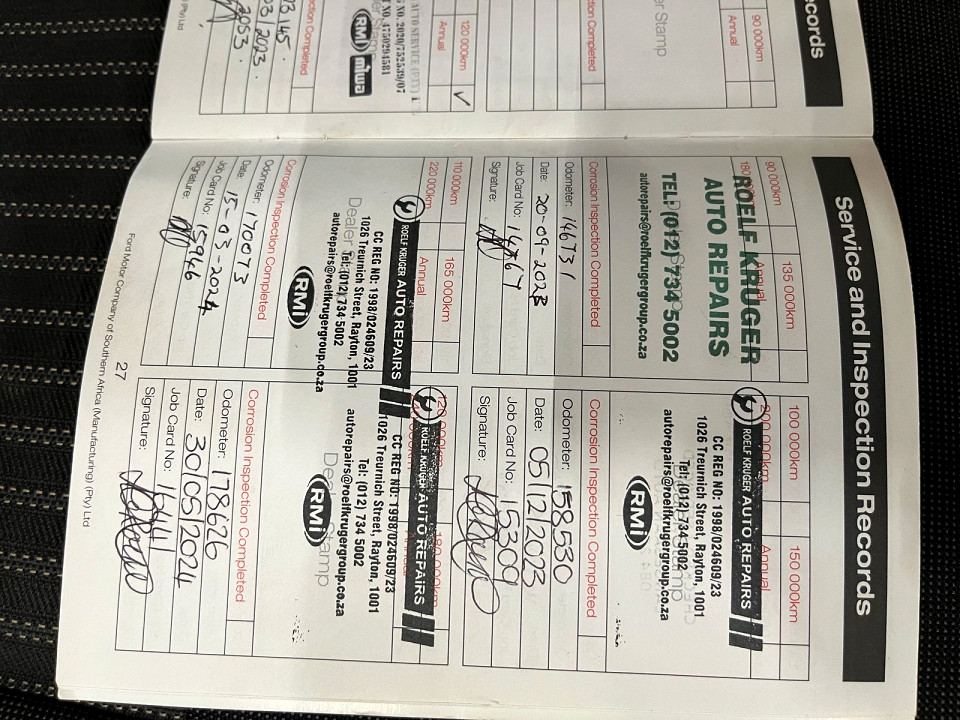 Service and Inspection Records
90 000km
135 000km
180
Annual
ROELF KRUGER
AUTO REPAIRS
TEL: (012) 734 5002
autorepairs@roelfkrugergroup.co.za
Corrosion Inspection Completed
Odometer: 146731
Date: 20-09-2023
Job Card No:
Signature:
100 000km
150 000km
200 000km
Annual
ROELF KRUGER AUTO REPAIRS
CC REG NO: 1998/024609/23
1026 Treurnich Street, Rayton, 1001
Tel: (012) 734 5002
autorepairs@roelfkrugergroup.co.za
RMi
Corrosion Inspection Completed
Odometer: 158530
Date: 05/12/2023
Job Card No: 15300
Signature:
110 000km
165 000km
220 000km
Annual
ROELF KRUGER AUTO REPAIRS
CC REG NO: 1998/024609/23
1026 Treurnich Street, Rayton, 1001
Dealer Stamp
Tel: (012) 734 5002
autorepairs@roelfkrugergroup.co.za
RMi
Corrosion Inspection Completed
Odometer: 170073
Date: 15-03-2024
Job Card No: 15946
Signature:
120 000km
180 000km
ROELF KRUGER AUTO REPAIRS
CC REG NO: 1998/024609/23
1026 Treurnich Street, Rayton, 1001
Tel: (012) 734 5002
autorepairs@roelfkrugergroup.co.za
Dealer Stamp
RMi
Corrosion Inspection Completed
Odometer: 178626
Date: 30/05/2024
Job Card No:
Signature:
27
Ford Motor Company of Southern Africa (Manufacturing) (Pty) Ltd
ecords
90 000km
Annual
er Stamp
ction Completed
120 000km
Annual
AUTO SERVICE (PTY) L
G NO. 2020/752539/07
T NO. 4750294581
RMi
miwa
ction Completed
3 145.
08.2023.
2053.
(Pty) Ltd